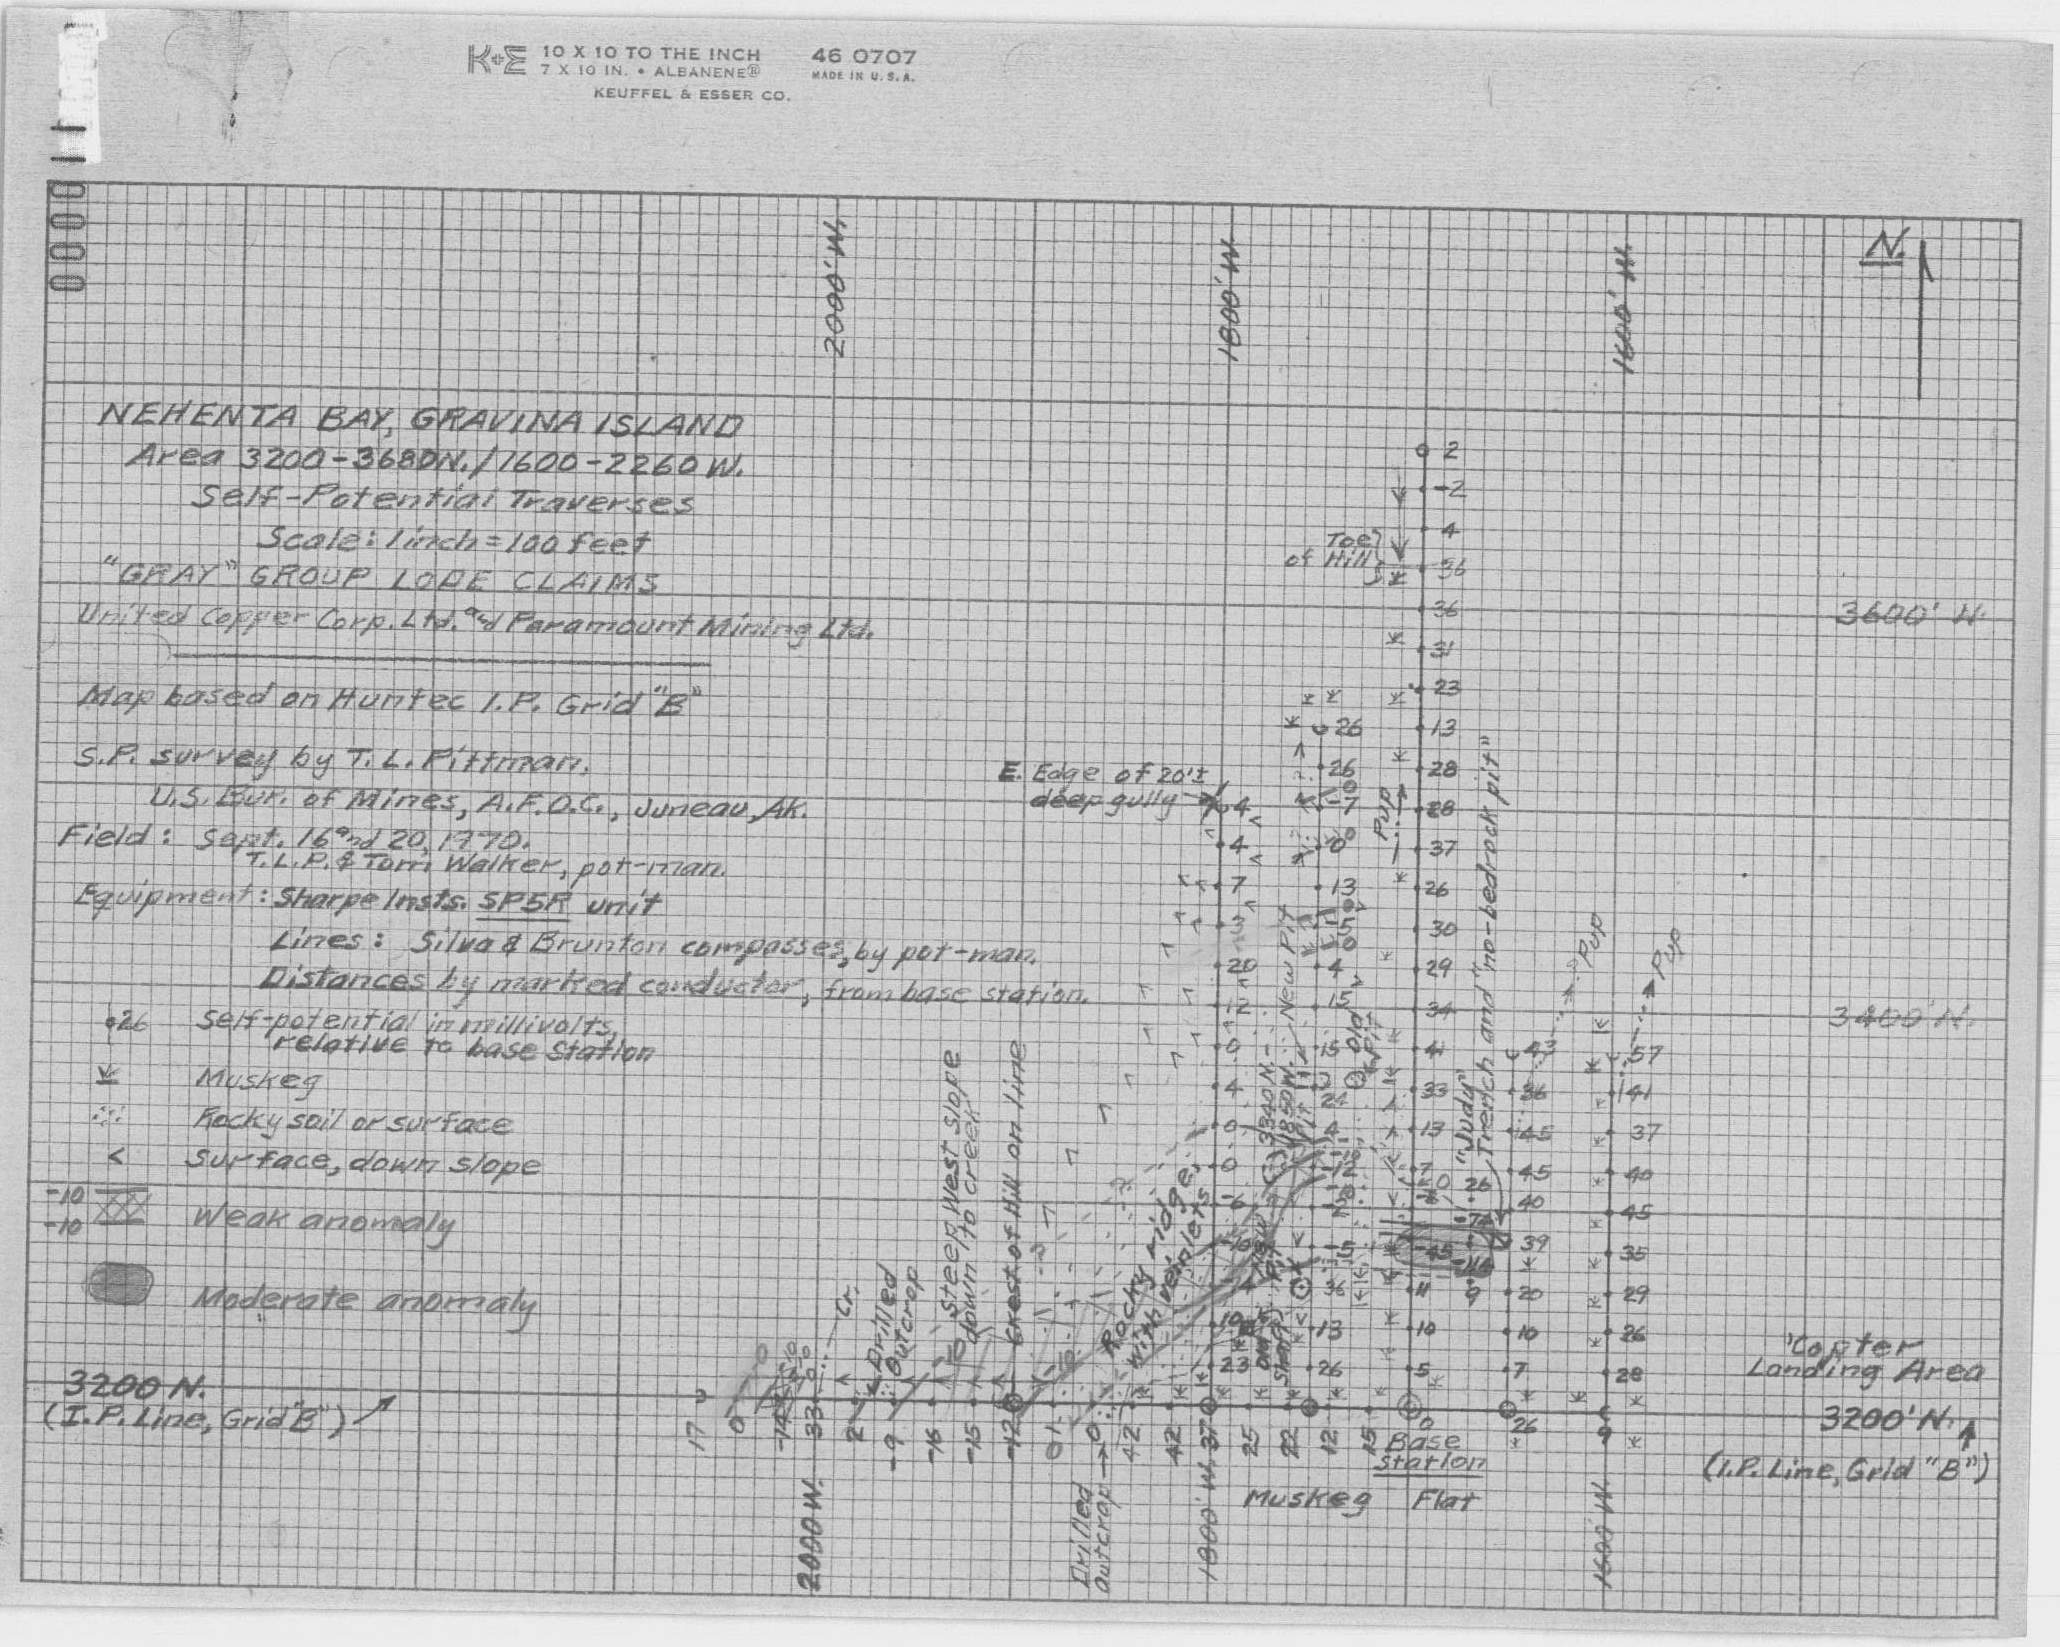 K+E 10 X 10 TO THE INCH 46 0707
7 X 10 IN. • ALBANENE® MADE IN U.S.A.
KEUFFEL & ESSER CO.
2000' W.
1800' W.
1600' W.
N.
NEHENTA BAY, GRAVINA ISLAND
Area 3200-3680N./1600-2260W.
Self-Potential Traverses
Scale: 1inch=100 feet
"GRAY" GROUP LODE CLAIMS
United Copper Corp. Ltd. and Paramount Mining Ltd.
Map based on Huntec I.P. Grid "B"
S.P. survey by T. L. Pittman.
U.S. Bur. of Mines, A.F.O.C., Juneau, Ak.
Field: Sept. 16 and 20, 1970.
T.L.P. & Tom Walker, pot-man.
Equipment: Sharpe Insts. SP5R unit
Lines: Silva & Brunton compasses, by pot-man.
Distances by marked conductor, from base station.
26 Self-potential in millivolts,
relative to base station
Muskeg
Rocky soil or surface
< Surface, down slope
-10
-10
Weak anomaly
Moderate anomaly
3200 N.
(I.P. Line, Grid "B")
2
-2
4
36
36
31
23
13
28
28
37
26
30
29
34
41
33
13
7
-45
11
10
5
0
Toe
of Hill
3600' N.
3400' N.
E. Edge of 20'±
deep gully
4
4
7
3
20
12
0
4
0
0
-6
-10
10
23
26
26
-7
13
4
15
15
4
-12
-5
36
13
26
Pup
Pup
Pup
New Pit
3340 N.
1850 W.
Old
Pit
"Judy"
Trench and "no-bedrock pit"
43
36
45
45
40
39
20
10
7
26
57
41
37
40
45
35
29
26
28
9
Rocky ridge,
with veinlets
Crest of Hill on line
Steep West slope
down to creek
Drilled
Outcrop
Cr.
17
0
-14
33
2
-9
-16
-15
-12
1
0
42
42
37
25
22
12
15
Base
Station
Muskeg Flat
Drilled
Outcrop
2000 W.
1800' W.
1600' W.
'Copter
Landing Area
3200' N.
(I.P. Line, Grid "B")